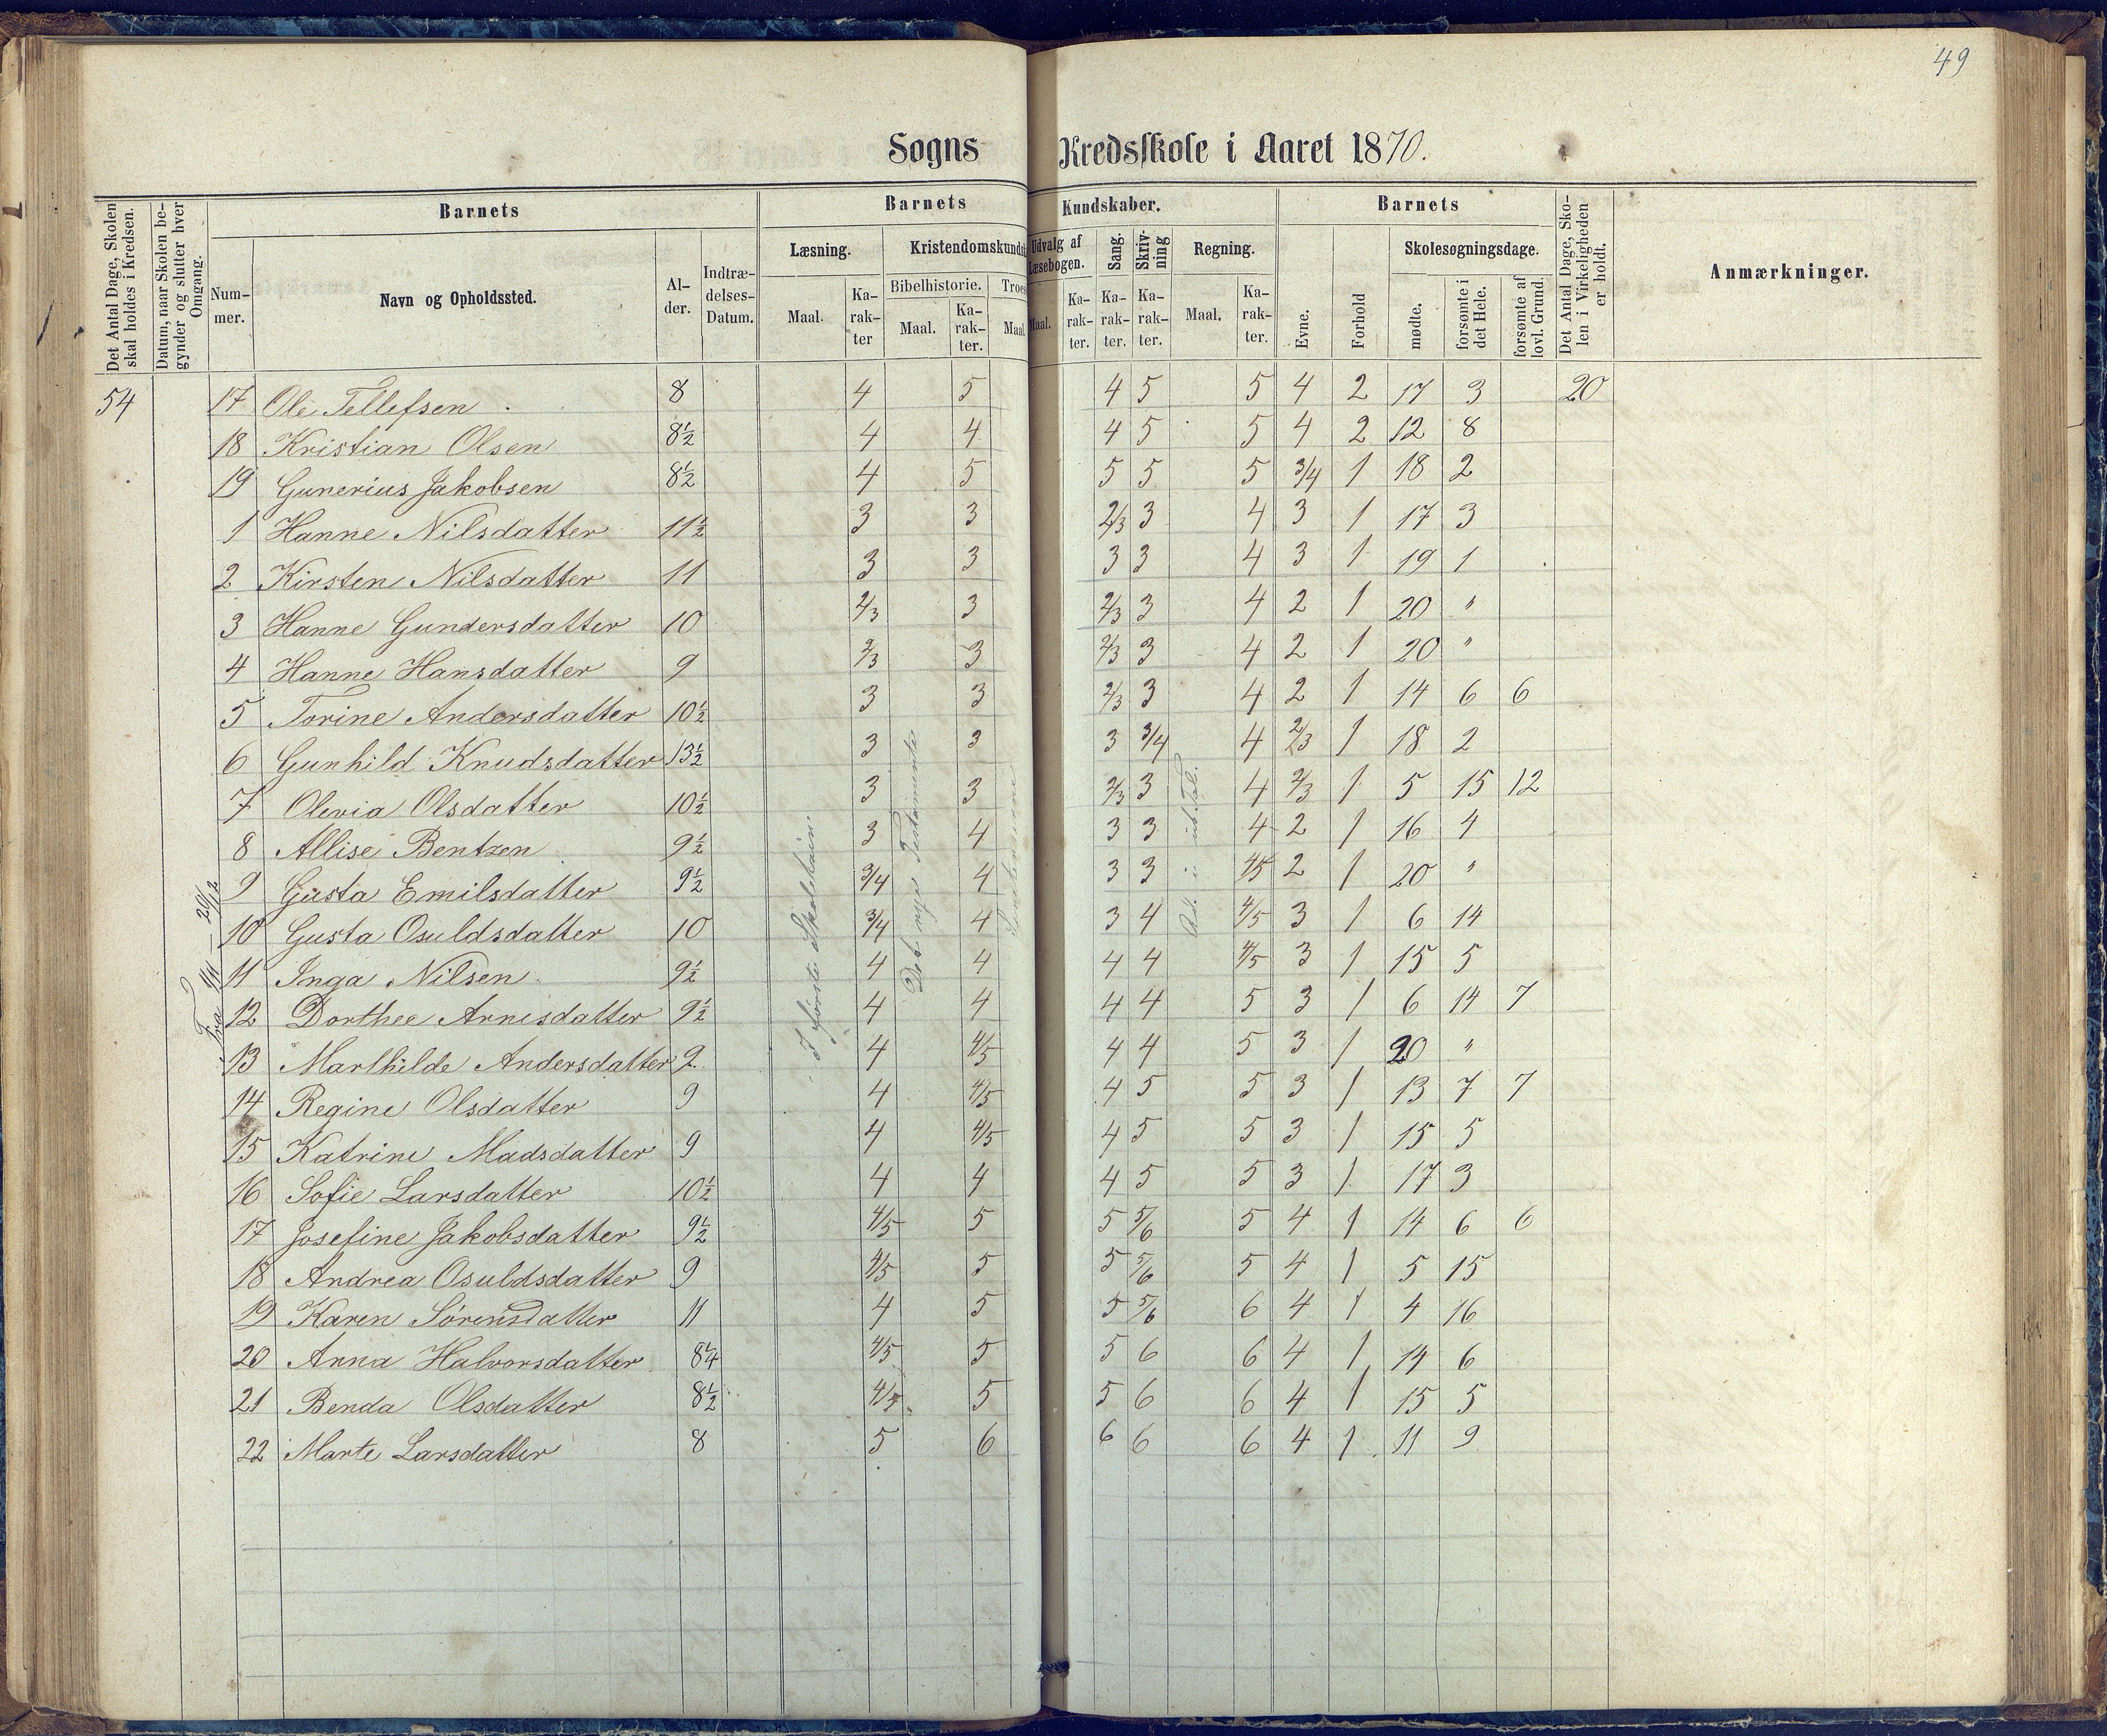 49
Sogns Kredsskole i Aaret 1870.
Det Antal Dage, Skolen skal holdes i Kredsen.
Datum, naar Skolen begynder og slutter hver Omgang.
Barnets
Nummer.
Navn og Opholdssted.
Alder.
Indtrædelses-Datum.
Barnets Kundskaber.
Læsning.
Maal.
Karakter
Kristendomskunds
Bibelhistorie.
Maal.
Karakter.
Troes
Maal.
Udvalg af Læsebogen.
Maal.
Karakter.
Sang.
Karakter.
Skrivning
Karakter.
Regning.
Maal.
Karakter.
Barnets
Evne.
Forhold
Skolesøgningsdage.
mødte.
forsømte i det Hele.
forsømte af lovl. Grund.
Det Antal Dage, Skolen i Virkeligheden er holdt.
Anmærkninger.
54 17 Ole Tellefsen 8 4 5 4 5 5 4 2 17 3 20
18 Kristian Olsen 8½ 4 4 4 5 5 4 2 12 8
19 Gunerius Jakobsen 8½ 4 5 5 5 5 3/4 1 18 2
1 Hanne Nilsdatter 11½ 3 3 2/3 3 4 3 1 17 3
2 Kirsten Nilsdatter 11 3 3 3 3 4 3 1 19 1
3 Hanne Gundersdatter 10 2/3 3 2/3 3 4 2 1 20 "
4 Hanne Hansdatter 9 2/3 3 2/3 3 4 2 1 20 "
5 Torine Andersdatter 10½ 3 3 2/3 3 4 2 1 14 6 6
6 Gunhild Knudsdatter 13½ 3 3 3 3/4 4 2/3 1 18 2
7 Olevia Olsdatter 10½ 3 3 2/3 3 4 2/3 1 5 15 12
8 Allise Bentzen 9½ 3 4 3 3 4 2 1 16 4
9 Gusta Emilsdatter 9½ 3/4 4 3 3 4/5 2 1 20 "
10 Gusta Osuldsdatter 10 3/4 4 3 4 4/5 3 1 6 14
11 Inga Nilsen 9½ 4 4 4 4 4/5 3 1 15 5
12 Dorthee Arnesdatter 9½ 4 4 4 4 5 3 1 6 14 7
13 Marthilde Andersdatter 9 4 4/5 4 4 5 3 1 20 "
14 Regine Olsdatter 9 4 4/5 4 5 5 3 1 13 7 7
15 Katrine Madsdatter 9 4 4/5 4 5 5 3 1 15 5
16 Sofie Larsdatter 10½ 4 4 4 5 5 3 1 17 3
17 Josefine Jakobsdatter 9½ 4/5 5 5 5/6 5 4 1 14 6 6
18 Andrea Osuldsdatter 9 4/5 5 5 5/6 5 4 1 5 15
19 Karen Sørensdatter 11 4 5 5 5/6 6 4 1 4 16
20 Anna Halvorsdatter 8¼ 4/5 5 5 6 6 4 1 14 6
21 Benda Olsdatter 8½ 4/5 5 5 6 6 4 1 15 5
22 Marte Larsdatter 8 5 6 6 6 6 4 1 11 9
Fra
20/12
I første Skoletrin.
Det nye Testamente